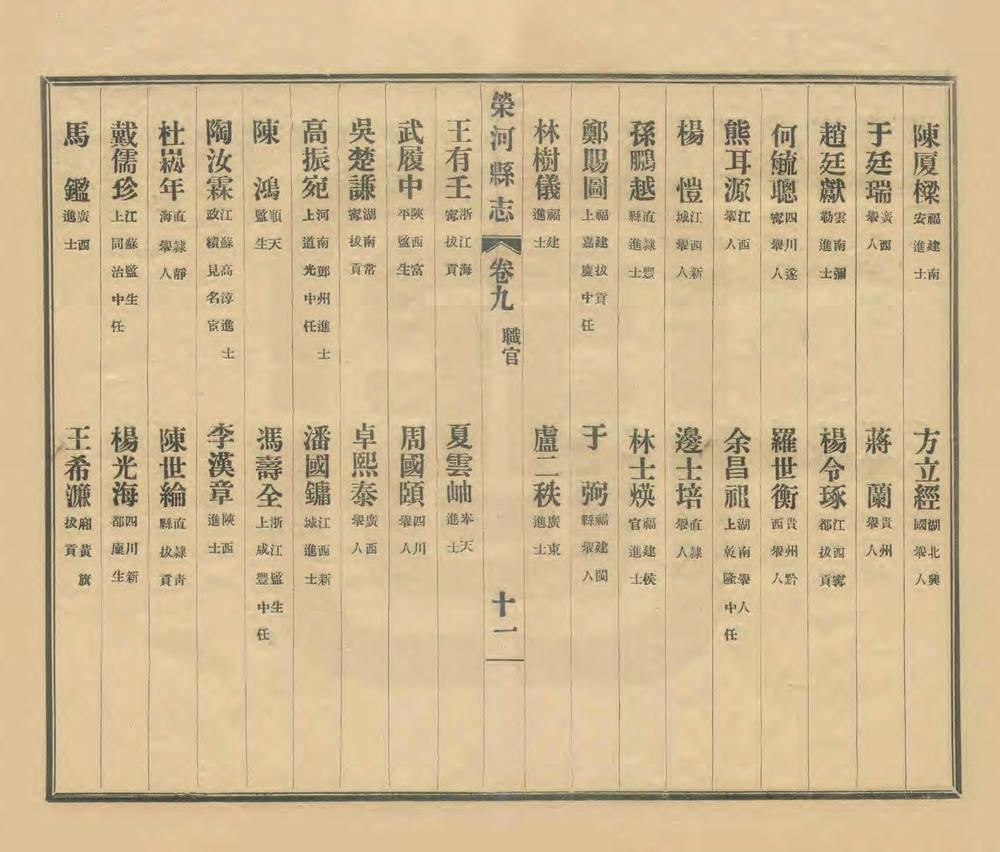 陳厦樑福建南安進士 方立經湖北興國舉人
于廷瑞廣西舉人 蔣蘭貴州舉人
趙廷獻雲南彌勒進士 楊令琢江西寧都拔貢
何毓聰四川遂寧舉人 羅世衡貴州黔西舉人
熊耳源江西舉人 余昌祖湖南舉人上乾隆中任
楊愷江西新城舉人 邊士培直隸舉人
孫鵬越直隸豐縣進士 林士煐福建侯官進士
鄭賜圖福建拔貢上嘉慶中任 于弼福建閩縣舉人
林樹儀福建進士 盧二秩廣東進士
榮河縣志 卷九 職官 十一
王有壬浙江海寧拔貢 夏雲岫奉天進士
武履中陝西富平監生 周國頤四川舉人
吳楚謙湖南常寧拔貢 卓熙泰廣西舉人
高振宛河南鄧州進士上道光中任 潘國鏞江西新城進士
陳鴻順天監生 馮壽全浙江監生上咸豐中任
陶汝霖江蘇高淳進士政績見名宦 李漢章陝西進士
杜崧年直隸靜海舉人 陳世綸直隸青縣拔貢
戴儒珍江蘇監生上同治中任 楊光海四川新都廩生
馬鑑廣西進士 王希濂廂黃旗拔貢